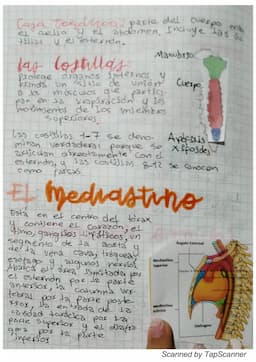 Caja Torácica: parte del cuerpo entre
el cuello y el abdomen, incluye las cos
tillas y el esternón.
las Costillas
protege órganos internos y
brinda un sitio de unión
a los músculos que partici-
pan en la respiración y los
movimientos de los miembros
superiores.
Manubrio
Cuerpo
Apófisis
Xifoides
Las costillas 1-7 se deno-
minan verdaderas porque se
articulan directamente con el
esternón, y las costillas 8-12 se conocen
como falsas.
El Mediastino
Está en el centro del tórax
y contiene el corazón, el
timo, ganglios linfáticos, un
segmento de la aorta
de la vena cava, tráquea,
esófago y algunos nervios.
por la parte
anterior, la columna verte-
bral por la parte poste-
rior, la entrada de la
cavidad torácica por la
parte superior y el diafrag-
ma por la parte
inferior
Mediastino
superior
Mediastino
inferior
Diafragma
Scanned by TapScanner